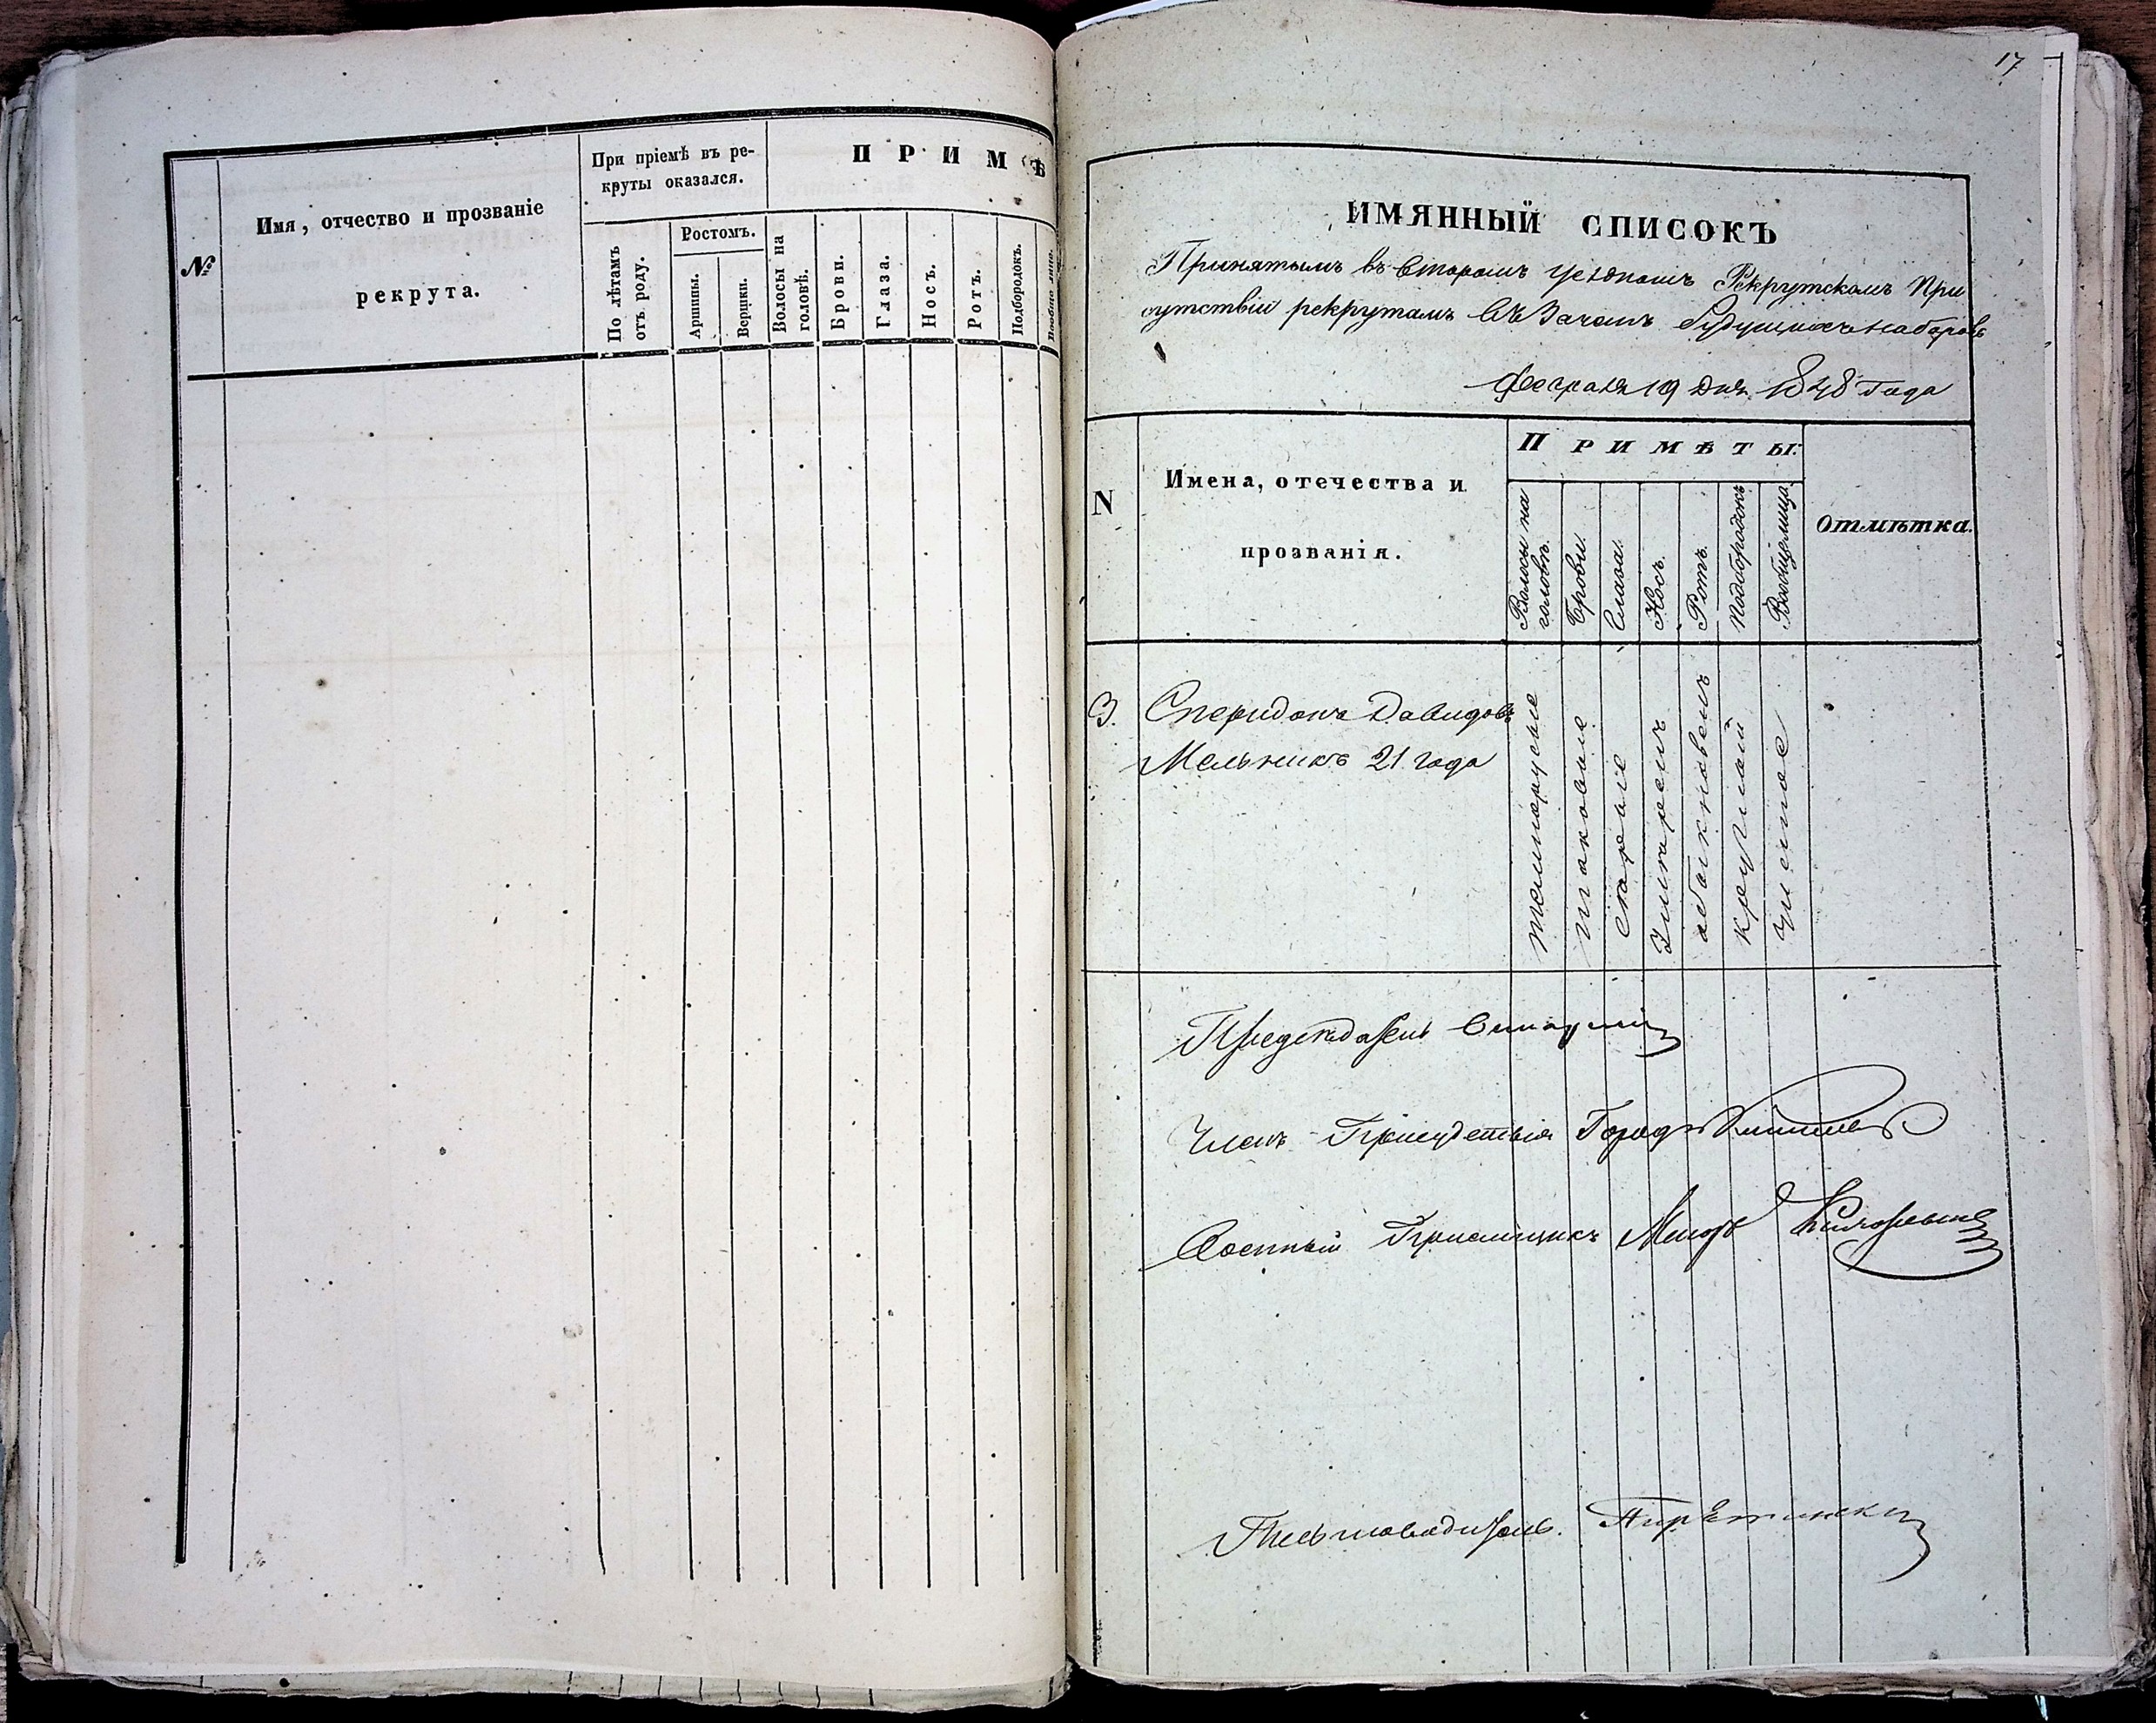 №
Имя, отчество и прозваніе
рекрута.
При пріемѣ въ ре-
круты оказался.
По лѣтамъ
отъ роду.
Ростомъ.
Аршины.
Вершки.
ПРИМѢ
Волосы на
головѣ.
Брови.
Глаза.
Носъ.
Ротъ.
Подбородокъ.
Вообще лице.
17
ИМЯННЫЙ СПИСОКЪ
Принятымъ въ Второмъ Уездномъ Рекрутскомъ При
сутствіи рекрутамъ Въ Зачетъ будущихъ наборовъ
Февраля 19 дня 1848 Года
N
Имена, отечества и
прозванія.
ПРИМѢТЫ:
Волосы на
головѣ.
Брови.
Глаза.
Носъ.
Ротъ.
Подбородокъ
Вообще лица
Отмѣтка.
3. Спиридонъ Давидовъ
Мельникъ 21 года
темнорусые
карые
круглый
чистое
Председатель
Членъ Присудствія Город
Военный Приемщикъ Маіоръ
Письмоводитель.